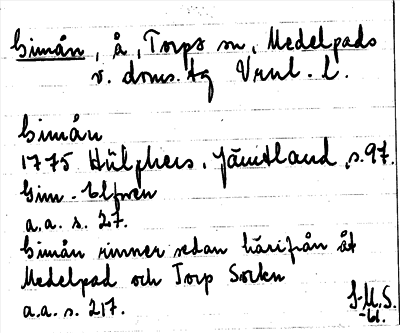 Gimån, å, Torps sn, Medelpads
v. doms. tg Vrnl. l.
Gimån
1775 Hülphers, Jämtland, s. 97.
Gim-Elfwen
a.a. s. 27.
Gimån rinner sedan härifrån åt
Medelpad och Torp Socken
a.a. s. 217.
J-M. S.